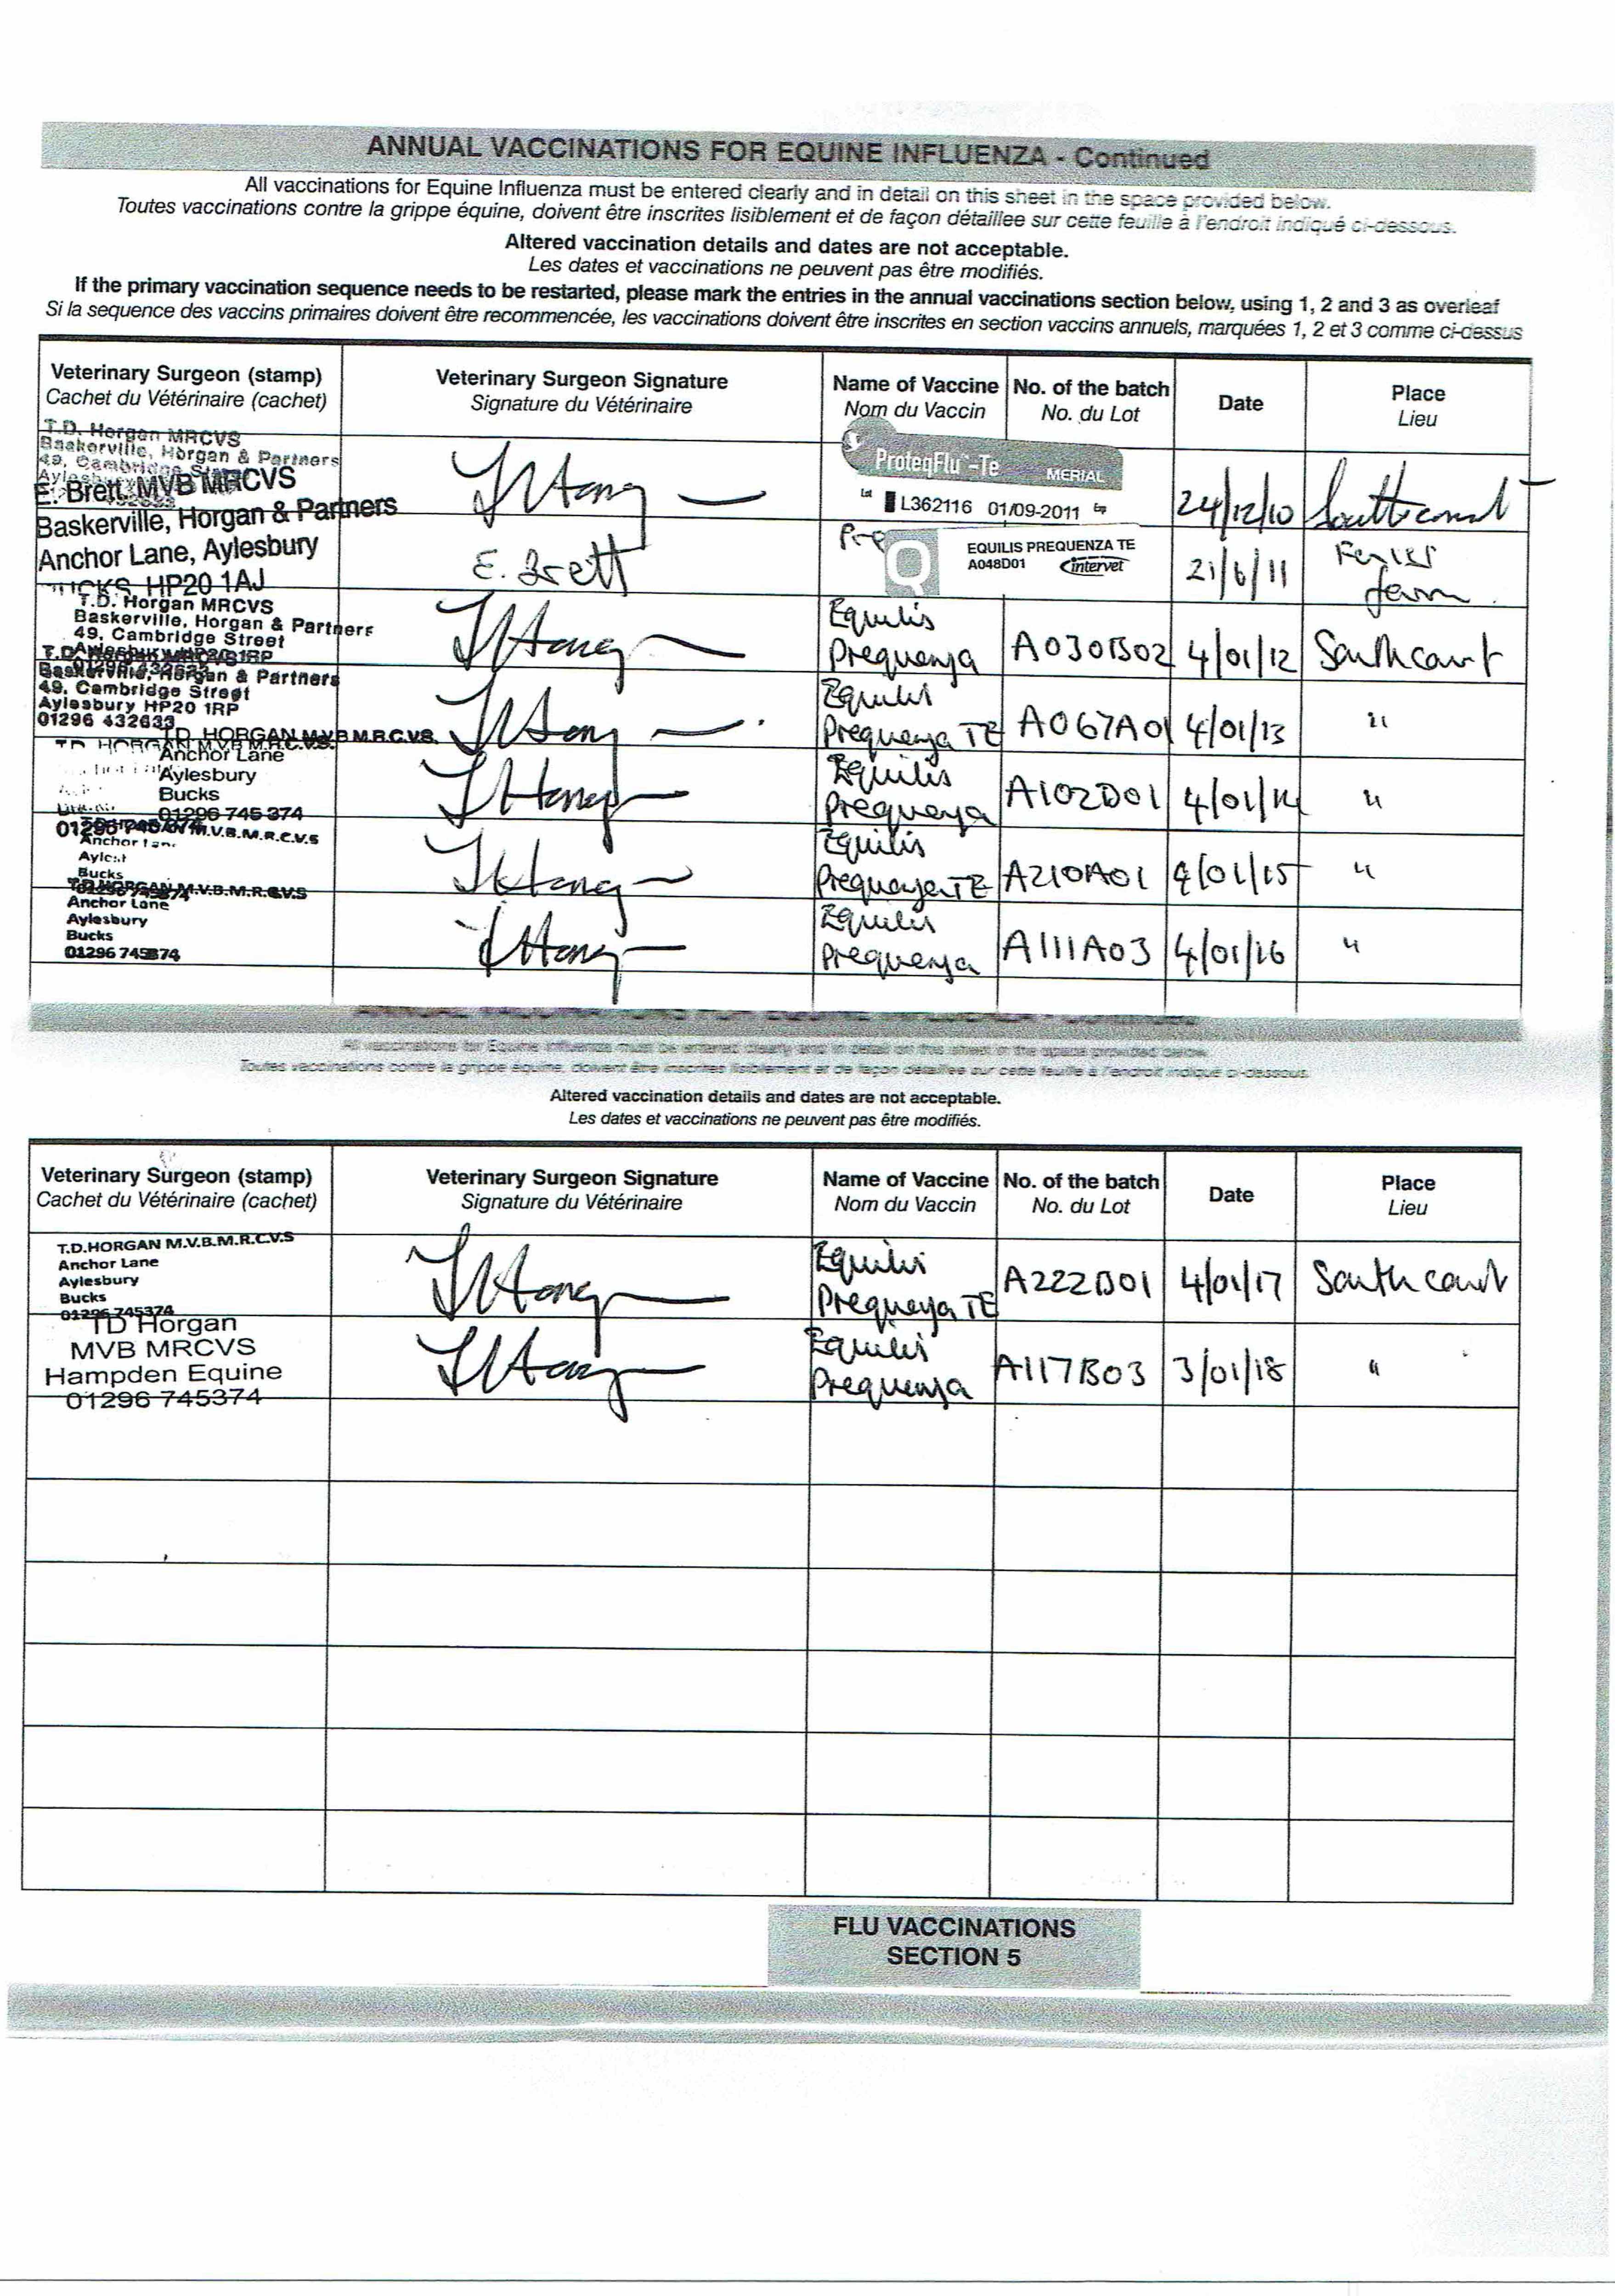 ANNUAL VACCINATIONS FOR EQUINE INFLUENZA - Continued
All vaccinations for Equine Influenza must be entered clearly and in detail on this sheet in the space provided below.
Toutes vaccinations contre la grippe équine, doivent être inscrites lisiblement et de façon détaillee sur cette feuille à l'endroit indiqué ci-dessous.
Altered vaccination details and dates are not acceptable.
Les dates et vaccinations ne peuvent pas être modifiés.
If the primary vaccination sequence needs to be restarted, please mark the entries in the annual vaccinations section below, using 1, 2 and 3 as overleaf
Si la sequence des vaccins primaires doivent être recommencée, les vaccinations doivent être inscrites en section vaccins annuels, marquées 1, 2 et 3 comme ci-dessus
Veterinary Surgeon (stamp) Veterinary Surgeon Signature Name of Vaccine No. of the batch Date Place
Cachet du Vétérinaire (cachet) Signature du Vétérinaire Nom du Vaccin No. du Lot Lieu
T.D. Horgan MRCVS
Baskerville, Horgan & Partners
49, Cambridge
ProteqFlu-Te MERIAL
Lot L362116 01/09-2011 24/12/10 Southcourt
E. Brett MVB MRCVS
Baskerville, Horgan & Partners
Anchor Lane, Aylesbury
HP20 1AJ
E. Brett Pre EQUILIS PREQUENZA TE
A048D01 intervet 21/6/11
T.D. Horgan MRCVS
Baskerville, Horgan & Partners
49, Cambridge Street
Aylesbury HP20 1RP
01296 432633
Equilis
Prequenza A030B02 4/01/12 Southcourt
Baskerville, Horgan & Partners
49, Cambridge Street
Aylesbury HP20 1RP
01296 432633
Equilis
Prequenza TE A067A01 4/01/13 "
TD HORGAN M.V.B M.R.C.V.S.
Anchor Lane
Aylesbury
Bucks
01296 745 374
Equilis
Prequenza A102D01 4/01/14 "
HORGAN M.V.B.M.R.C.V.S
Anchor
Bucks
Equilis
Prequenza TE A210A01 4/01/15 "
T.D.HORGAN M.V.B.M.R.C.V.S
Anchor Lane
Aylesbury
Bucks
01296 745374
Equilis
Prequenza A111A03 4/01/16 "
All vaccinations for Equine Influenza must be entered clearly and in detail on this sheet in the space provided below.
Toutes vaccinations contre la grippe équine, doivent être inscrites lisiblement et de façon détaillee sur cette feuille à l'endroit indiqué ci-dessous.
Altered vaccination details and dates are not acceptable.
Les dates et vaccinations ne peuvent pas être modifiés.
Veterinary Surgeon (stamp) Veterinary Surgeon Signature Name of Vaccine No. of the batch Date Place
Cachet du Vétérinaire (cachet) Signature du Vétérinaire Nom du Vaccin No. du Lot Lieu
T.D.HORGAN M.V.B.M.R.C.V.S
Anchor Lane
Aylesbury
Bucks
01296 745374
Equilis
Prequenza TE A222B01 4/01/17 Southcourt
TD Horgan
MVB MRCVS
Hampden Equine
01296 745374
Equilis
Prequenza A117B03 3/01/18 "
FLU VACCINATIONS
SECTION 5